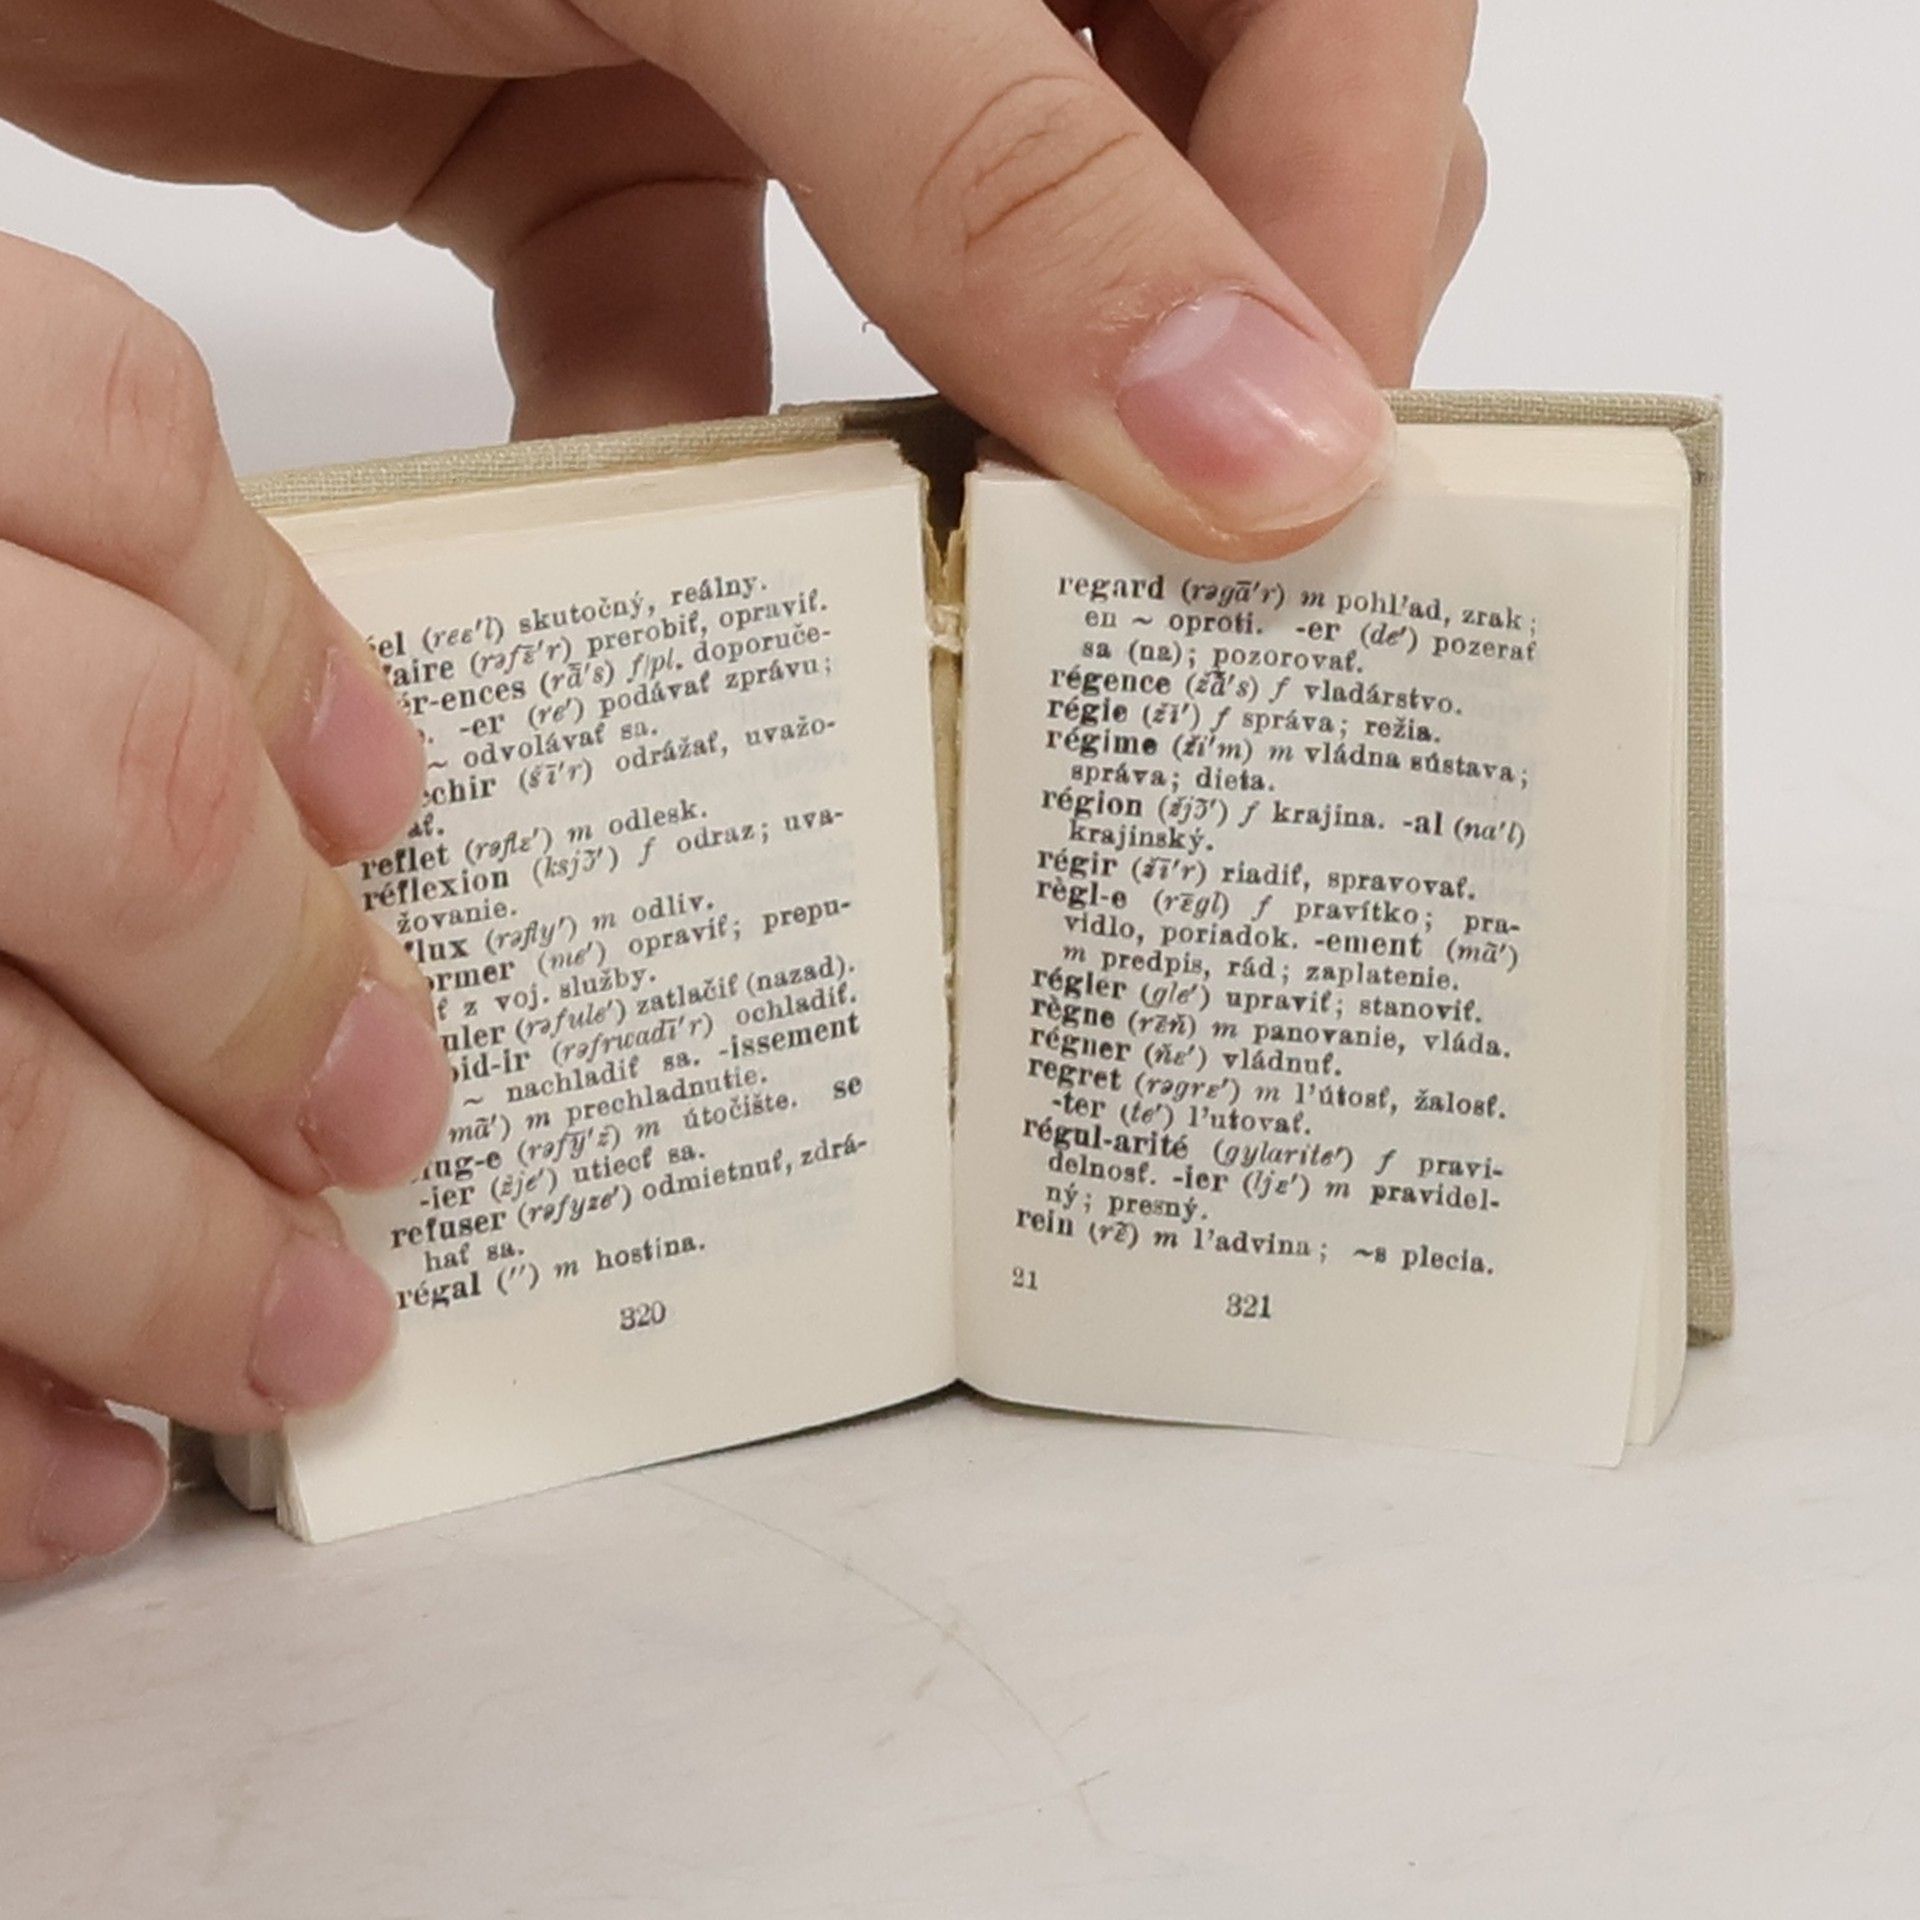 éel (reɛ'l) skutočný, reálny.
faire (rəfɛ̄'r) prerobiť, opraviť.
ér-ences (rā̃'s) f/pl. doporuče-
-er (re') podávať zprávu;
~ odvolávať sa.
échir (šī'r) odrážať, uvažo-
ať.
reflet (rəflɛ') m odlesk.
réflexion (ksjɔ̃') f odraz; uva-
žovanie.
flux (rəfly') m odliv.
ormer (me') opraviť; prepu-
ť z voj. služby.
uler (rəfule') zatlačiť (nazad).
oid-ir (rəfrwadī'r) ochladiť.
~ nachladiť sa. -issement
mã') m prechladnutie.
fug-e (rəfȳ'ž) m útočište. se
-ier (žje') utiecť sa.
refuser (rəfyze') odmietnuť, zdrá-
hať sa.
régal (″) m hostina.
320
regard (rəgā'r) m pohľad, zrak;
en ~ oproti. -er (de') pozerať
sa (na); pozorovať.
régence (žā̃'s) f vladárstvo.
régie (žī') f správa; režia.
régime (ži'm) m vládna sústava;
správa; dieta.
région (žjɔ̃') f krajina. -al (na'l)
krajinský.
régir (žī'r) riadiť, spravovať.
règl-e (rɛ̄gl) f pravítko; pra-
vidlo, poriadok. -ement (mã')
m predpis, rád; zaplatenie.
régler (gle') upraviť; stanoviť.
règne (rɛ̄ň) m panovanie, vláda.
régner (ňɛ') vládnuť.
regret (rəgrɛ') m ľútosť, žalosť.
-ter (te') ľutovať.
régul-arité (gylarite') f pravi-
delnosť. -ier (ljɛ') m pravidel-
ný; presný.
rein (rɛ̃) m ľadvina; ~s plecia.
21
321